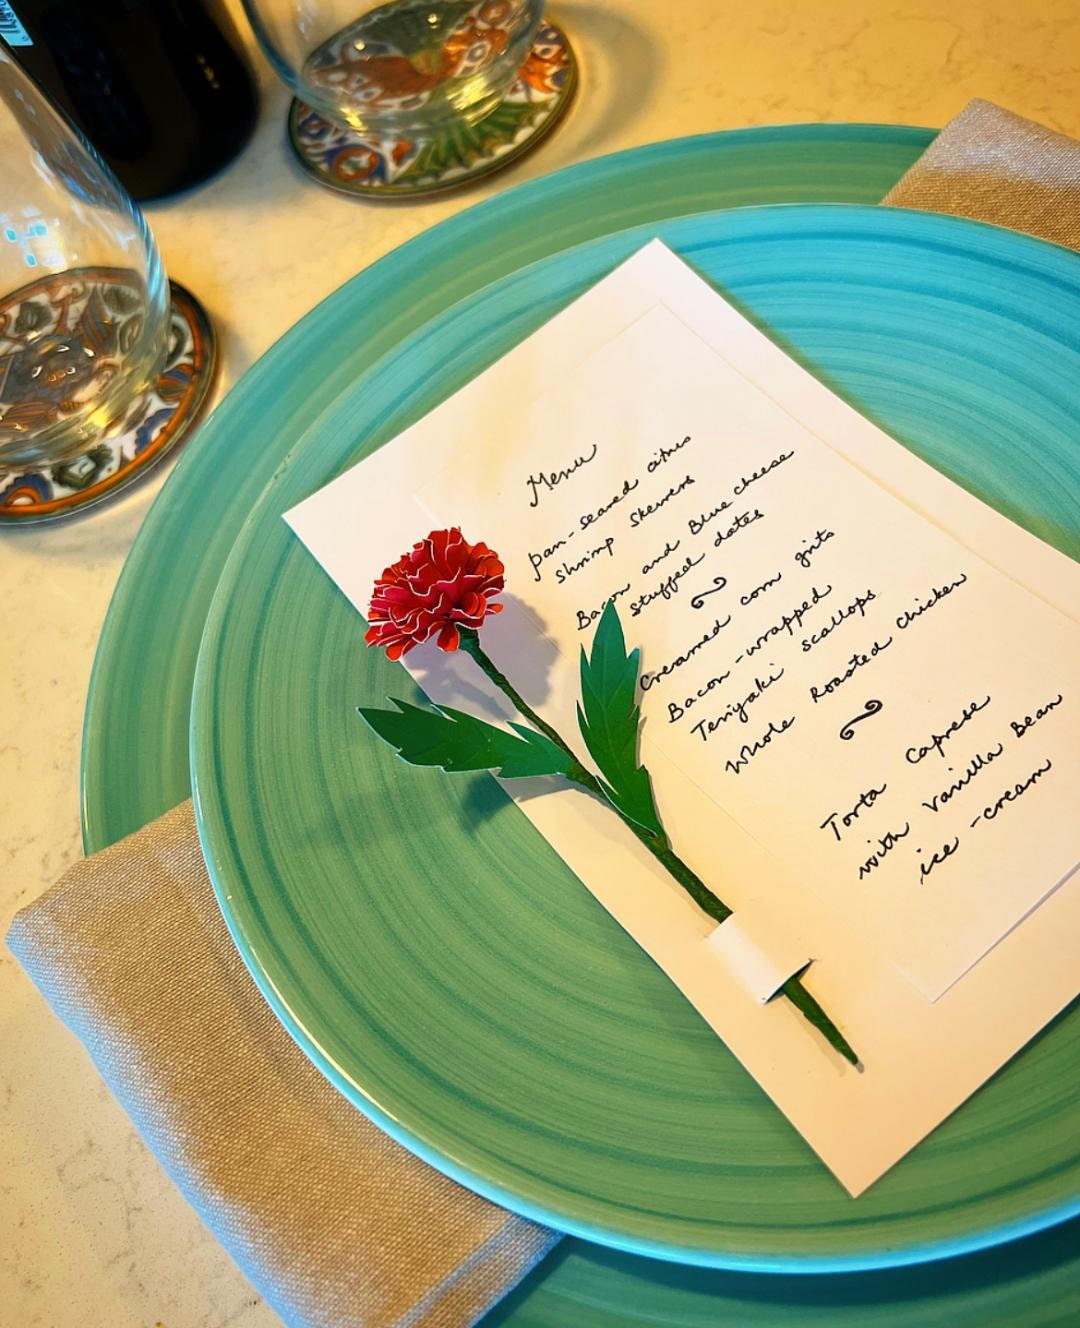 Menu
pan-seared citrus
shrimp skewers
Bacon and Blue cheese
stuffed dates
Creamed corn grits
Bacon-wrapped
Teriyaki scallops
Whole Roasted chicken
Torta Caprese
with Vanilla Bean
ice-cream